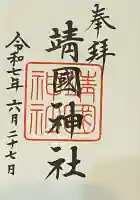 奉拝
靖國神社
令和七年六月二十七日
靖国
神社